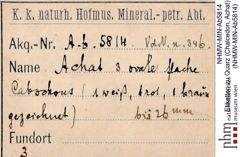 K. k. naturh. Hofmus. Mineral.-petr. Abt.
Akq.-Nr. A.b. 5814 V.d.N. n. 346.
Name Achat 3 ovale flache
Cabochons (1 weiß, 1 rot, 1 braun
gezeichnet) bis 26 mm
Fundort
3
NHMW-MIN-Ab5814
(NHMW-MIN-Ab5814)
Quarz (Chalcedon, Achat)
nhm
museum wien